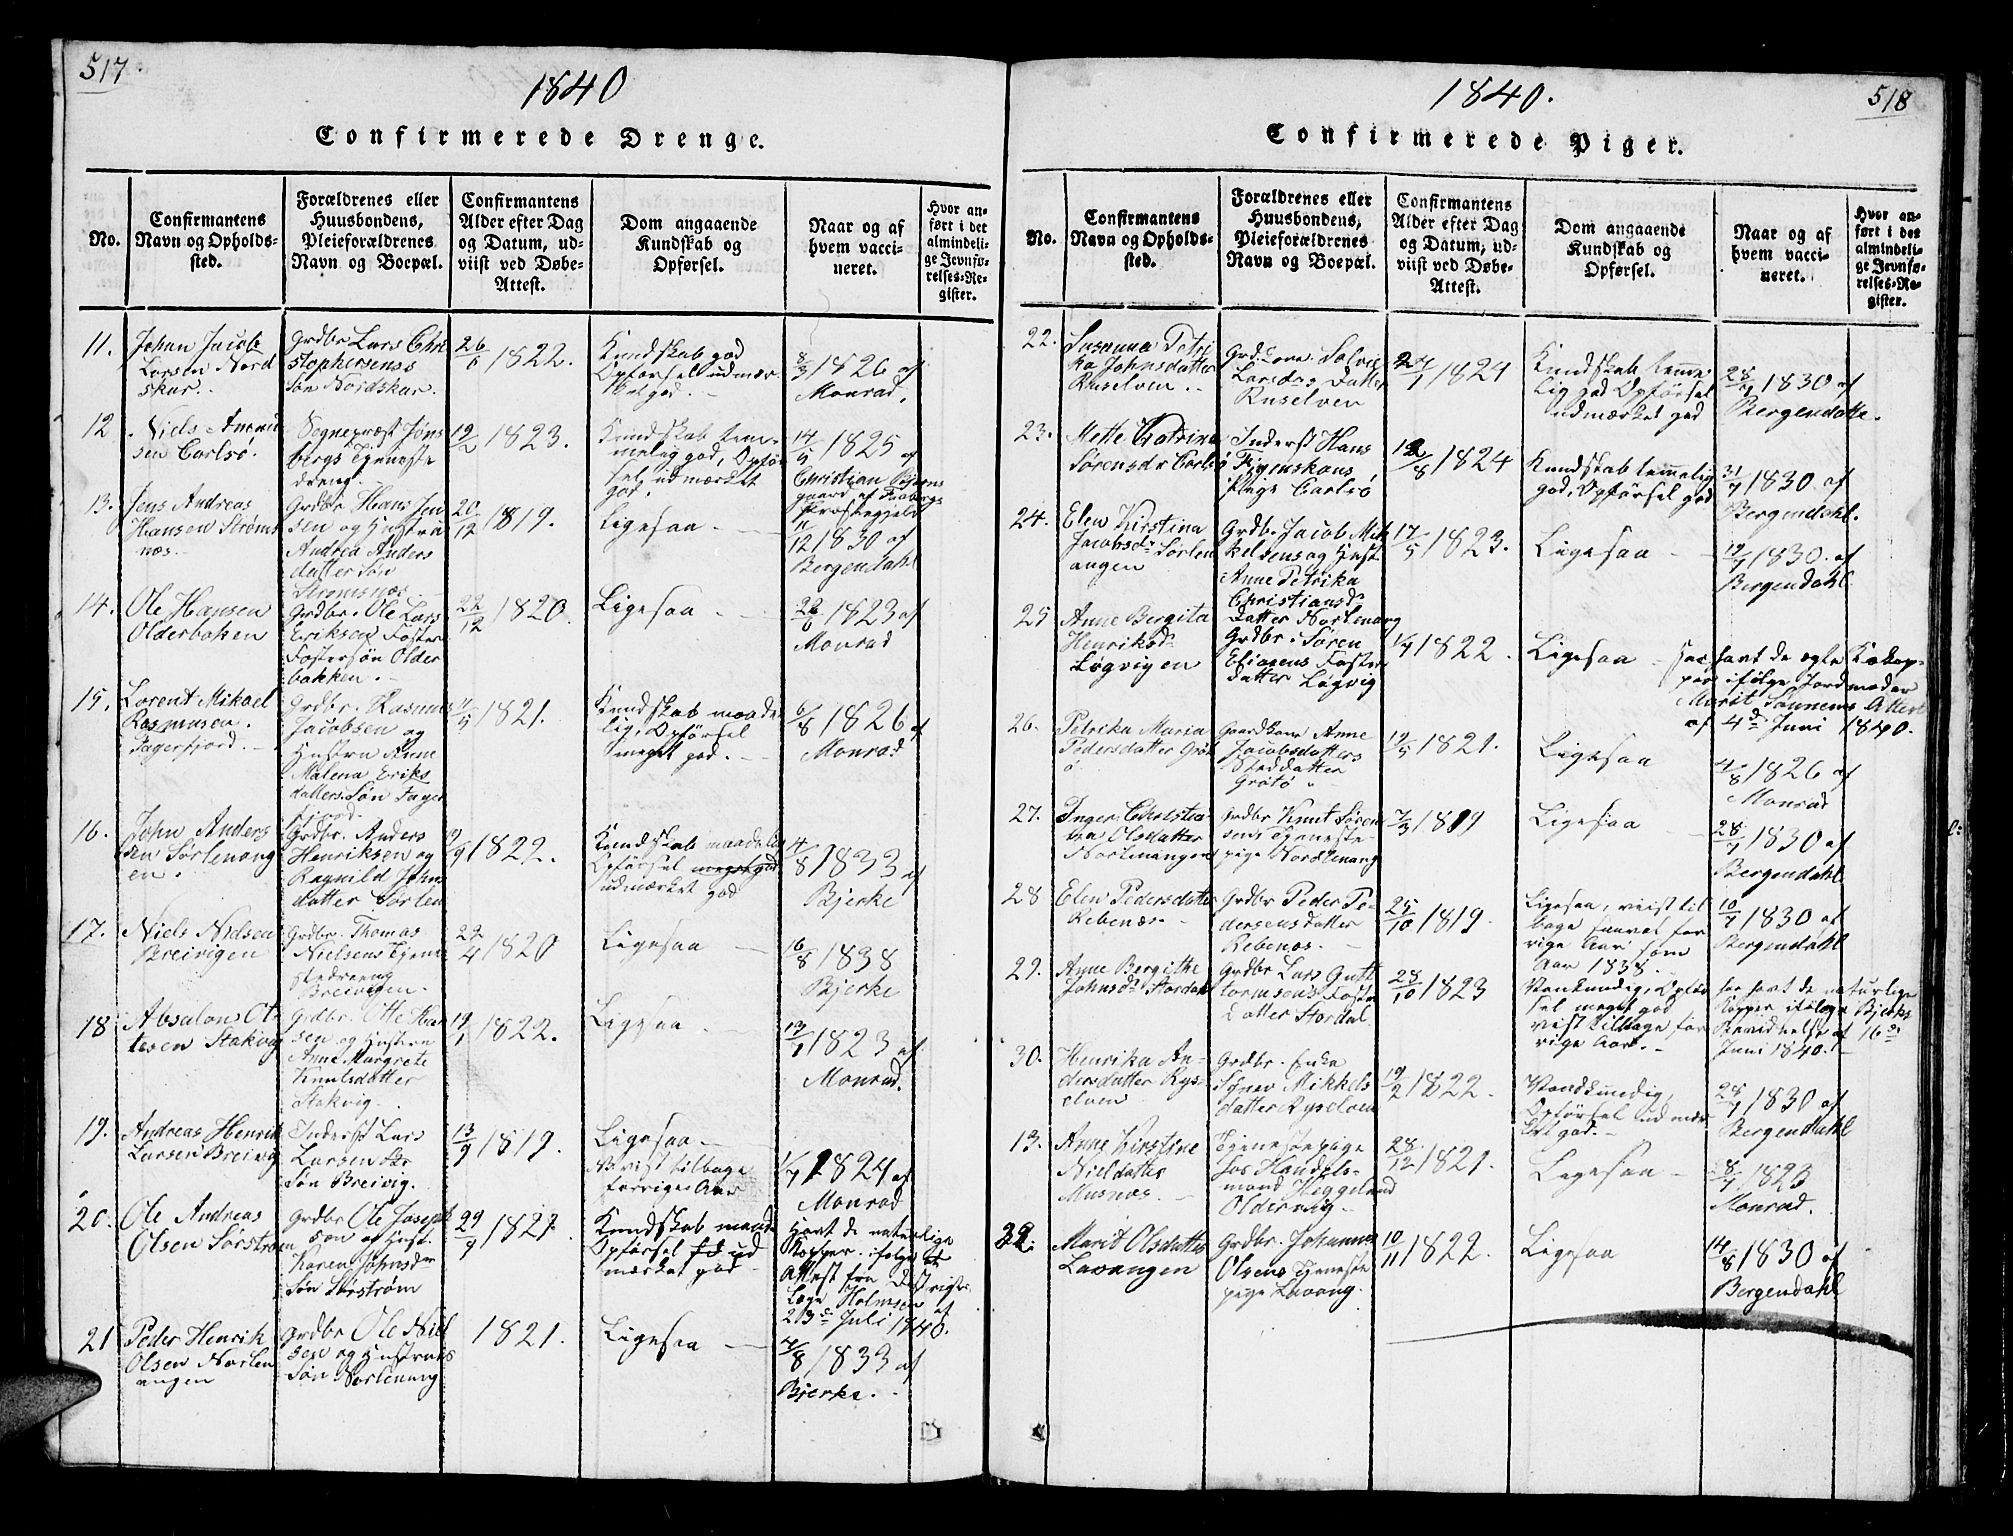 517.
1840
Confirmerede Drenge.
No.
Confirmantens
Navn og Opholds-
sted.
Forældrenes eller
Huusbondens,
Pleieforældrenes
Navn og Boepæl.
Confirmantens
Alder efter Dag
og Datum, ud-
viist ved Døbe-
Attest.
Dom angaaende
Kundskab og
Opførsel.
Naar og af
hvem vacci-
neret.
Hvor an-
ført i det
almindeli-
ge Jevnfø-
relses-Re-
gister.
11.
Johan Jacob
Larsen Nord
skar.
Grdbr Lars Chri
stophersens
Søn Nordskar.
26/6 1822.
Kundskab god
Opførsel udmær
ket god.
8/3 1826 af
Monrad.
12
Niels
sen Carlsø.
Sognepræst Jøns
bergs Tjeneste
dreng.
19/2 1823.
Kundskab tem-
melig god, Opfør
sel udmærket
god.
14/5 1825 af
Christian
13.
Jens Andreas
Hansen Strøms
næs.
Grdbr. Hans Jen
sen og Hustru
Andrea Anders
datter Søn
Strømsnæs.
20/12 1819.
Ligesaa
11/12 1830 af
Bergendahl
14.
Ole Hansen
Olderbakken
Grdbr. Ole Lars
Eriksens Foster
Fostersøn Older
bakken.
22/12 1820.
Ligesaa
1823 af
Monrad
15.
Lorent Mikael
Rasmusen.
Fagerfjord.
Grdbr. Rasmus
Jacobsen og
Hustru Anne
Malena Eriks
datters Søn Fager
fjord.
11/5 1821.
Kundskab maade
lig, Opførsel
meget god.
6/8 1826 af
Monrad
16.
John Anders
sen Sørlenang
en.
Grdbr. Anders
Henriksen og
Ragnild John
datter Sørlen
1822.
Kundskab maadelig
Opførsel meget god
udmærket god
4/8 1833 af
Bjerke
17.
Niels Nielsen
Breivigen
Grdbr. Thomas
Nielsens Tjene
stedreng
Breivigen.
22/4 1820
Ligesaa
16/8 1838
Bjerke
18
Absalon Ot
tesen Stakvig
Grdbr. Otte Han
sen og Hustru
Anne Margrete
Knutsdatter
Stakvig.
19/1 1822.
Ligesaa
13/7 1823 af
Monrad.
19.
Andreas Henrik
Larsen Breivig
Inderst Lars
Larsens
Søn Breivig.
13/9 1819.
Ligesaa
vist tilbage
forrige Aar
1/7 1824 af
Monrad
20.
Ole Andreas
Olsen Sørstrøm
Grdbr Ole Joseph
søn og Hust.
Karen Johnsdr
Søn Sørstrøm
29/9 1821.
Kundskab maade
Opførsel ud
mærket god
Havt de naturlige
Kopper ifølge
Attest fra Distrigts
Læge Holmsen af
23de Juli 1840.
21
Peder Henrik
Olsen Norlen
angen
Grdbr Ole Niel
sen og Hustrues
Søn Norlenang
1821.
Ligesaa
4/8 1833 af
Bjerke.
1840.
518
Confirmerede Piger.
No.
Confirmantens
Navn og Opholds-
sted.
Forældrenes eller
Huusbondens,
Pleieforældrenes
Navn og Boepæl.
Confirmantens
Alder efter Dag
og Datum, ud-
viist ved Døbe-
Attest.
Dom angaaende
Kundskab og
Opførsel.
Naar og af
hvem vacci-
neret.
Hvor an-
ført i det
almindeli-
ge Jevnfø-
relses-Re-
gister.
22.
Susanna Petri
ka Johnsdatter
Ruselven.
Datter
Ruselven
1824
Kundskab temme
lig god Opførsel
udmærket god
28/7 1830 af
Bergendahl.
23.
Mette Katrina
Sørensdr Carlsø
Inderst Hans
Pige Carlsø
1824
Kundskab temmelig
god, Opførsel god
31/7 1830 af
Bergendahl.
24.
Elen Kirstina
Jacobsdr Sørlen
angen
Grdbr. Jacob Mik
kelsens og Hust
Anne Petrika
Christiansd
Datter Norlenang
17/5 1823.
Ligesaa
19/7 1830. af
Bergendahl
25
Anne Bergita
Henriksd
Løgvigen
Grdbr. Søren
Eliasens Foster
datter Løgvig
1/7 1822.
Ligesaa
har havt de ægte Kokop-
per ifølge Jordmoder
Marit Sønnens Attest
af 4de Juni 1840.
26.
Petrika Maria
Pedersdatter Grøt
ø
Gaardkone Anne
Jacobsdatters
Steddatter
Grøtø
19/5 1821.
Ligesaa
4/8 1826 af
Monrad
27.
Inger Christia
na Olsdatter
Norlenangen
Grdbr Knut Søren
sens Tjeneste
pige Nordlenang
7/3 1819
Ligesaa
28/7 1830 af
Bergendahl.
28
Elen Pedersdatter
Rebenæs
Grdbr Peder Pe-
dersens datter
Rebenæs.
25/10 1819.
Ligesaa, viist til
bage saavel for
rige Aar som
Aar 1838.
10/7 1830 af
Bergendahl
29.
Anne Bergithe
Johnsdr Stordal
Grdbr Lars Gutt
ormsens Foster
datter Stordal
28/10 1823
Vankundig, Opfør
sel meget god
vist tilbage for
rige Aar.
har havt de naturlige
Kopper ifølge Bjerkes
Bevidnelse af 16de
Juni 1840.
30.
Henrika An
dersdatter Rys
elven
Grdbr. Enke
Signe Mikkels
datter Ryselven
19/2 1822.
Vandkundig,
Opførsel ud mær
ket god.
24/7 1830 af
Bergendahl
13.
Anne Kirstine
Nielsdatter
Musnæs.
Tjenestepige
hos Handels-
mand Figgeland
Oldervig.
28/12 1821.
Ligesaa
8/7 1823
Monrad.
32.
Marit Olsdatter
Lavangen
Grdbr. Johannes
Olsens Tjeneste
pige Lavang.
10/11 1822.
Ligesaa
14/8 1830 af
Bergendahl